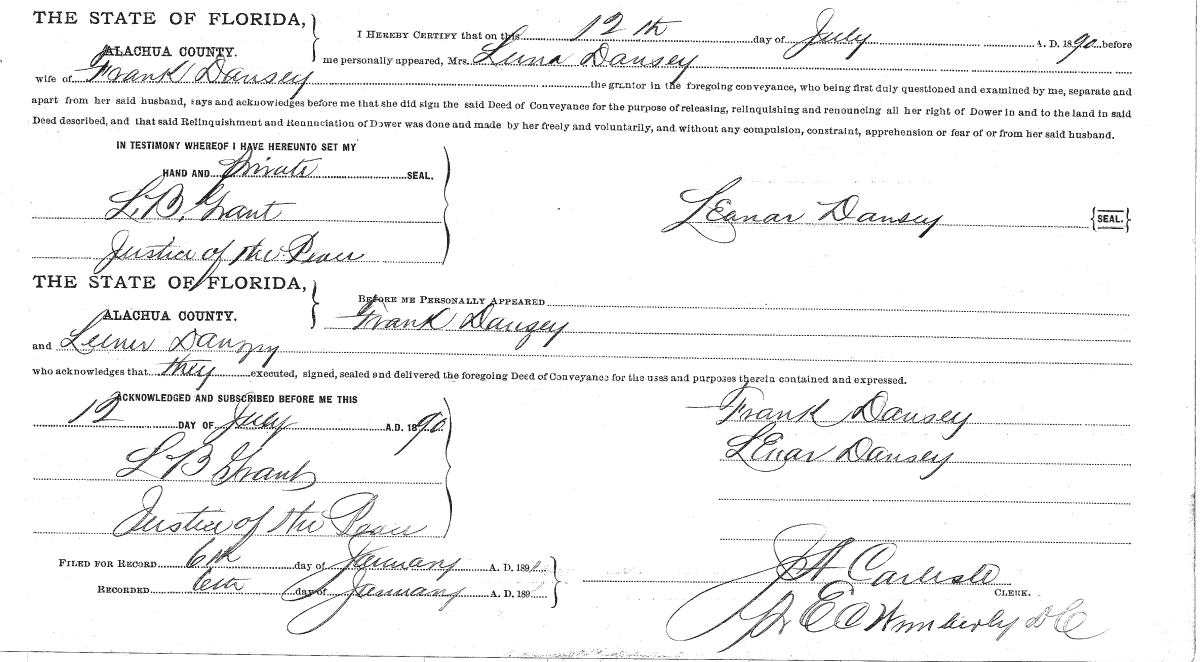 THE STATE OF FLORIDA,
ALACHUA COUNTY.
I HEREBY CERTIFY that on this 12th day of July A. D. 1890 before
me personally appeared, Mrs. Dansey
wife of Frank Dansey the grantor in the foregoing conveyance, who being first duly questioned and examined by me, separate and
apart from her said husband, says and acknowledges before me that she did sign the said Deed of Conveyance for the purpose of releasing, relinquishing and renouncing all her right of Dower in and to the land in said
Deed described, and that said Relinquishment and Renunciation of Dower was done and made by her freely and voluntarily, and without any compulsion, constraint, apprehension or fear of or from her said husband.
IN TESTIMONY WHEREOF I HAVE HEREUNTO SET MY
HAND AND private SEAL.
L. B. Grant
Justice of the Peace
LEanar Dansey {SEAL.}
THE STATE OF FLORIDA,
ALACHUA COUNTY.
BEFORE ME PERSONALLY APPEARED
Frank Danzey
and Leener
who acknowledges that they executed, signed, sealed and delivered the foregoing Deed of Conveyance for the uses and purposes therein contained and expressed.
ACKNOWLEDGED AND SUBSCRIBED BEFORE ME THIS
12 DAY OF July A.D. 1890
L B Grant
Justice of the Peace
Frank Dansey
LEnar Dansey
FILED FOR RECORD 6th day of January A. D. 189
RECORDED 6th day of January A. D. 189
Carlisle
CLERK.
Wimberly D C